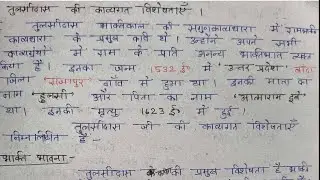 तुलसीदास की काव्यगत विशेषताएँ
तुलसीदास भक्तिकाल की सगुणकाव्यधारा में रामभक्ति
काव्यधारा के प्रमुख कवि थे। उन्होंने अपने सभी
काव्यग्रंथो में राम के प्रति अनन्य भक्तिभाव व्यक्त
किया है। इनका जन्म 1532 ई० में उत्तर प्रदेश बाँदा
जिला राजापुर गाँव में हुआ था। इनकी माता का
नाम हुलसी और पिता का नाम आत्माराम दुबे
था। इनकी मृत्यु 1623 ई० में हुई।
तुलसीदास जी की काव्यगत विशेषताएँ
निम्नलिखित हैं -
भक्ति भावना:-
तुलसीदास की प्रमुख विशेषता है